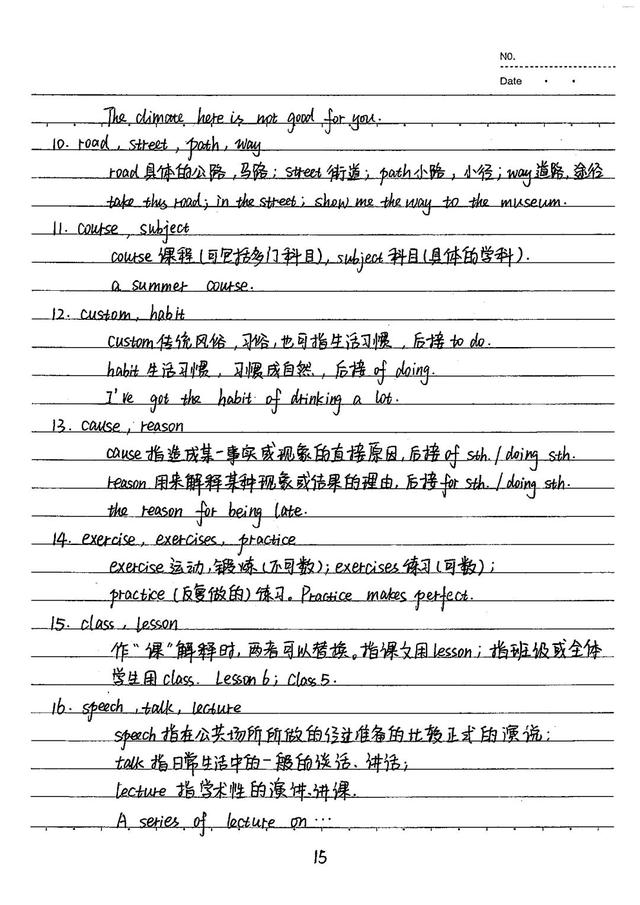 NO.
Date
The climate here is not good for you.
10. road, street, path, way
road 具体的公路,马路; street 街道; path 小路,小径; way 道路,途径
take this road; in the street; show me the way to the museum.
11. course, subject
course 课程(可包括多门科目), subject 科目(具体的学科).
a summer course.
12. custom, habit
custom 传统风俗,习俗,也可指生活习惯,后接 to do.
habit 生活习惯,习惯成自然,后接 of doing.
I've got the habit of drinking a lot.
13. cause, reason
cause 指造成某一事实或现象的直接原因,后接 of sth./doing sth.
reason 用来解释某种现象或结果的理由,后接 for sth./doing sth.
the reason for being late.
14. exercise, exercises, practice
exercise 运动,锻炼(不可数); exercises 练习(可数);
practice (反复做的)练习。Practice makes perfect.
15. class, lesson
作“课”解释时,两者可以替换。指课文用 lesson; 指班级或全体
学生用 class. Lesson 6; Class 5.
16. speech, talk, lecture
speech 指在公共场所所做的经过准备的比较正式的演说;
talk 指日常生活中的一般的谈话、讲话;
lecture 指学术性的演讲、讲课.
A series of lecture on …
15